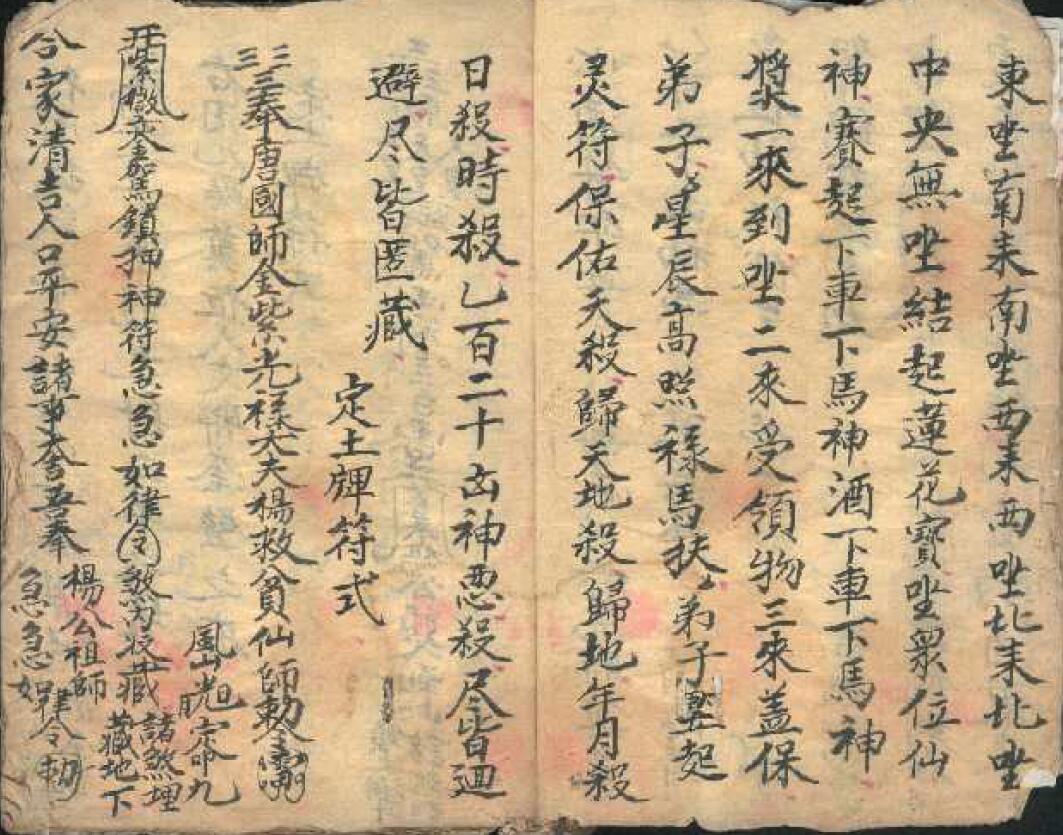 東坐南來南坐西來西坐北來北坐
中央無坐結起蓮花寶坐眾位仙
神賽起下車下馬神酒下車下馬神
漿一來到坐二來受領物三來蓋保
弟子星辰高照祿馬扶弟子竪起
灵符保佑天殺歸天地殺歸地年月殺
日殺時殺乙百二十凶神惡殺尽皆廻
避尽皆匿藏
定土牌符式
奉唐國師金紫光祿大夫楊救貧仙師勅令
神符急急如律令煞
諸煞埋
藏地下
合家清吉人口平安諸事大吉吾奉
楊公祖師
急急如律令勅